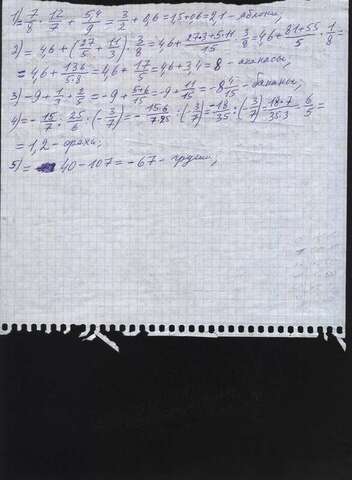 1) = 7/8 · 12/7 + 5,4/9 = 3/2 + 0,6 = 1,5 + 0,6 = 2,1 - яблоки;
2) = 4,6 + (27/5 + 11/3) · 3/8 = 4,6 + 27·3+5·11/15 · 3/8 = 4,6 + 81+55/5 · 1/8 =
= 4,6 + 136/5·8 = 4,6 + 17/5 = 4,6 + 3,4 = 8 - ананасы;
3) = -9 + 1/3 + 2/5 = -9 + 5+6/15 = -9 + 11/15 = -8 4/15 - бананы;
4) = - 15/7 : 25/6 : (- 3/7) = - 15·6/7·25 : (- 3/7) = -18/35 : (- 3/7) = 18·7/35·3 = 6/5 =
= 1,2 - орехи;
5) = 40 - 107 = -67 - груши;